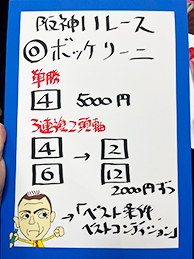 阪神11レース
◎ボッケリーニ
単勝
4 5000円
3連複2頭軸
4 → 2
6 12
2000円ずつ
→「ベスト条件
ベストコンディション」